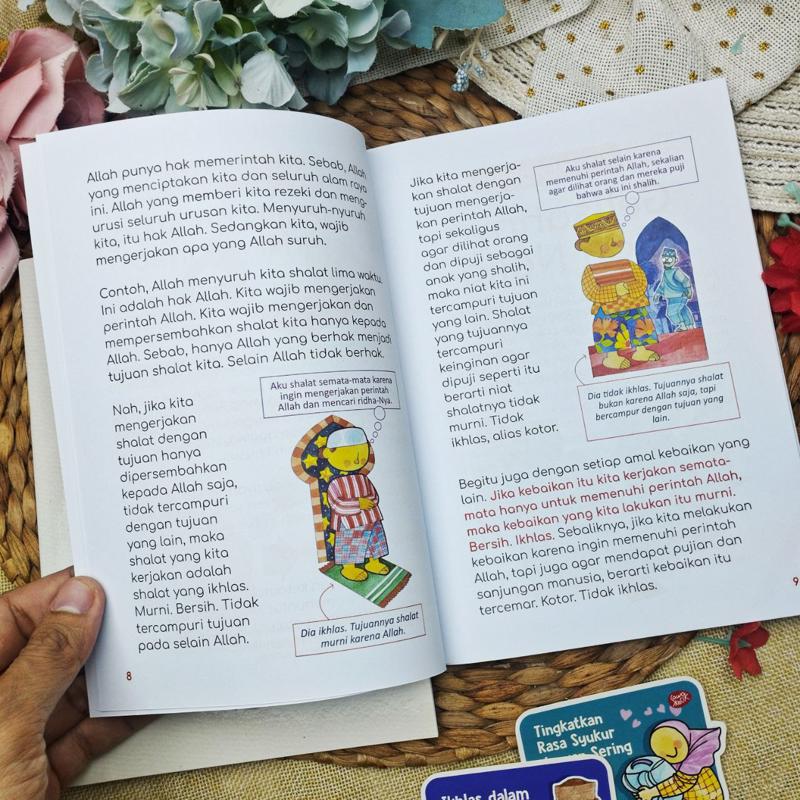 Allah punya hak memerintah kita. Sebab, Allah
yang menciptakan kita dan seluruh alam raya
ini. Allah yang memberi kita rezeki dan meng-
urusi seluruh urusan kita. Menyuruh-nyuruh
kita, itu hak Allah. Sedangkan kita, wajib
mengerjakan apa yang Allah suruh.
Contoh, Allah menyuruh kita shalat lima waktu.
Ini adalah hak Allah. Kita wajib mengerjakan
perintah Allah. Kita wajib mengerjakan dan
mempersembahkan shalat kita hanya kepada
Allah. Sebab, hanya Allah yang berhak menjadi
tujuan shalat kita. Selain Allah tidak berhak.
Nah, jika kita
mengerjakan
shalat dengan
tujuan hanya
dipersembahkan
kepada Allah saja,
tidak tercampuri
dengan tujuan
yang lain, maka
shalat yang kita
kerjakan adalah
shalat yang ikhlas.
Murni. Bersih. Tidak
tercampuri tujuan
pada selain Allah.
Aku shalat semata-mata karena
ingin mengerjakan perintah
Allah dan mencari ridha-Nya.
Dia ikhlas. Tujuannya shalat
murni karena Allah.
8
Jika kita mengerja-
kan shalat dengan
tujuan mengerja-
kan perintah Allah,
tapi sekaligus
agar dilihat orang
dan dipuji sebagai
anak yang shalih,
maka niat kita ini
tercampuri tujuan
yang lain. Shalat
yang tujuannya
tercampuri
keinginan agar
dipuji seperti itu
berarti niat
shalatnya tidak
murni. Tidak
ikhlas, alias kotor.
Aku shalat selain karena
memenuhi perintah Allah, sekalian
agar dilihat orang dan mereka puji
bahwa aku ini shalih.
Dia tidak ikhlas. Tujuannya shalat
bukan karena Allah saja, tapi
bercampur dengan tujuan yang
lain.
Begitu juga dengan setiap amal kebaikan yang
lain. Jika kebaikan itu kita kerjakan semata-
mata hanya untuk memenuhi perintah Allah,
maka kebaikan yang kita lakukan itu murni.
Bersih. Ikhlas. Sebaliknya, jika kita melakukan
kebaikan karena ingin memenuhi perintah
Allah, tapi juga agar mendapat pujian dan
sanjungan manusia, berarti kebaikan itu
tercemar. Kotor. Tidak ikhlas.
9
Tingkatkan
Rasa Syukur
Sering
Ikhlas dalam